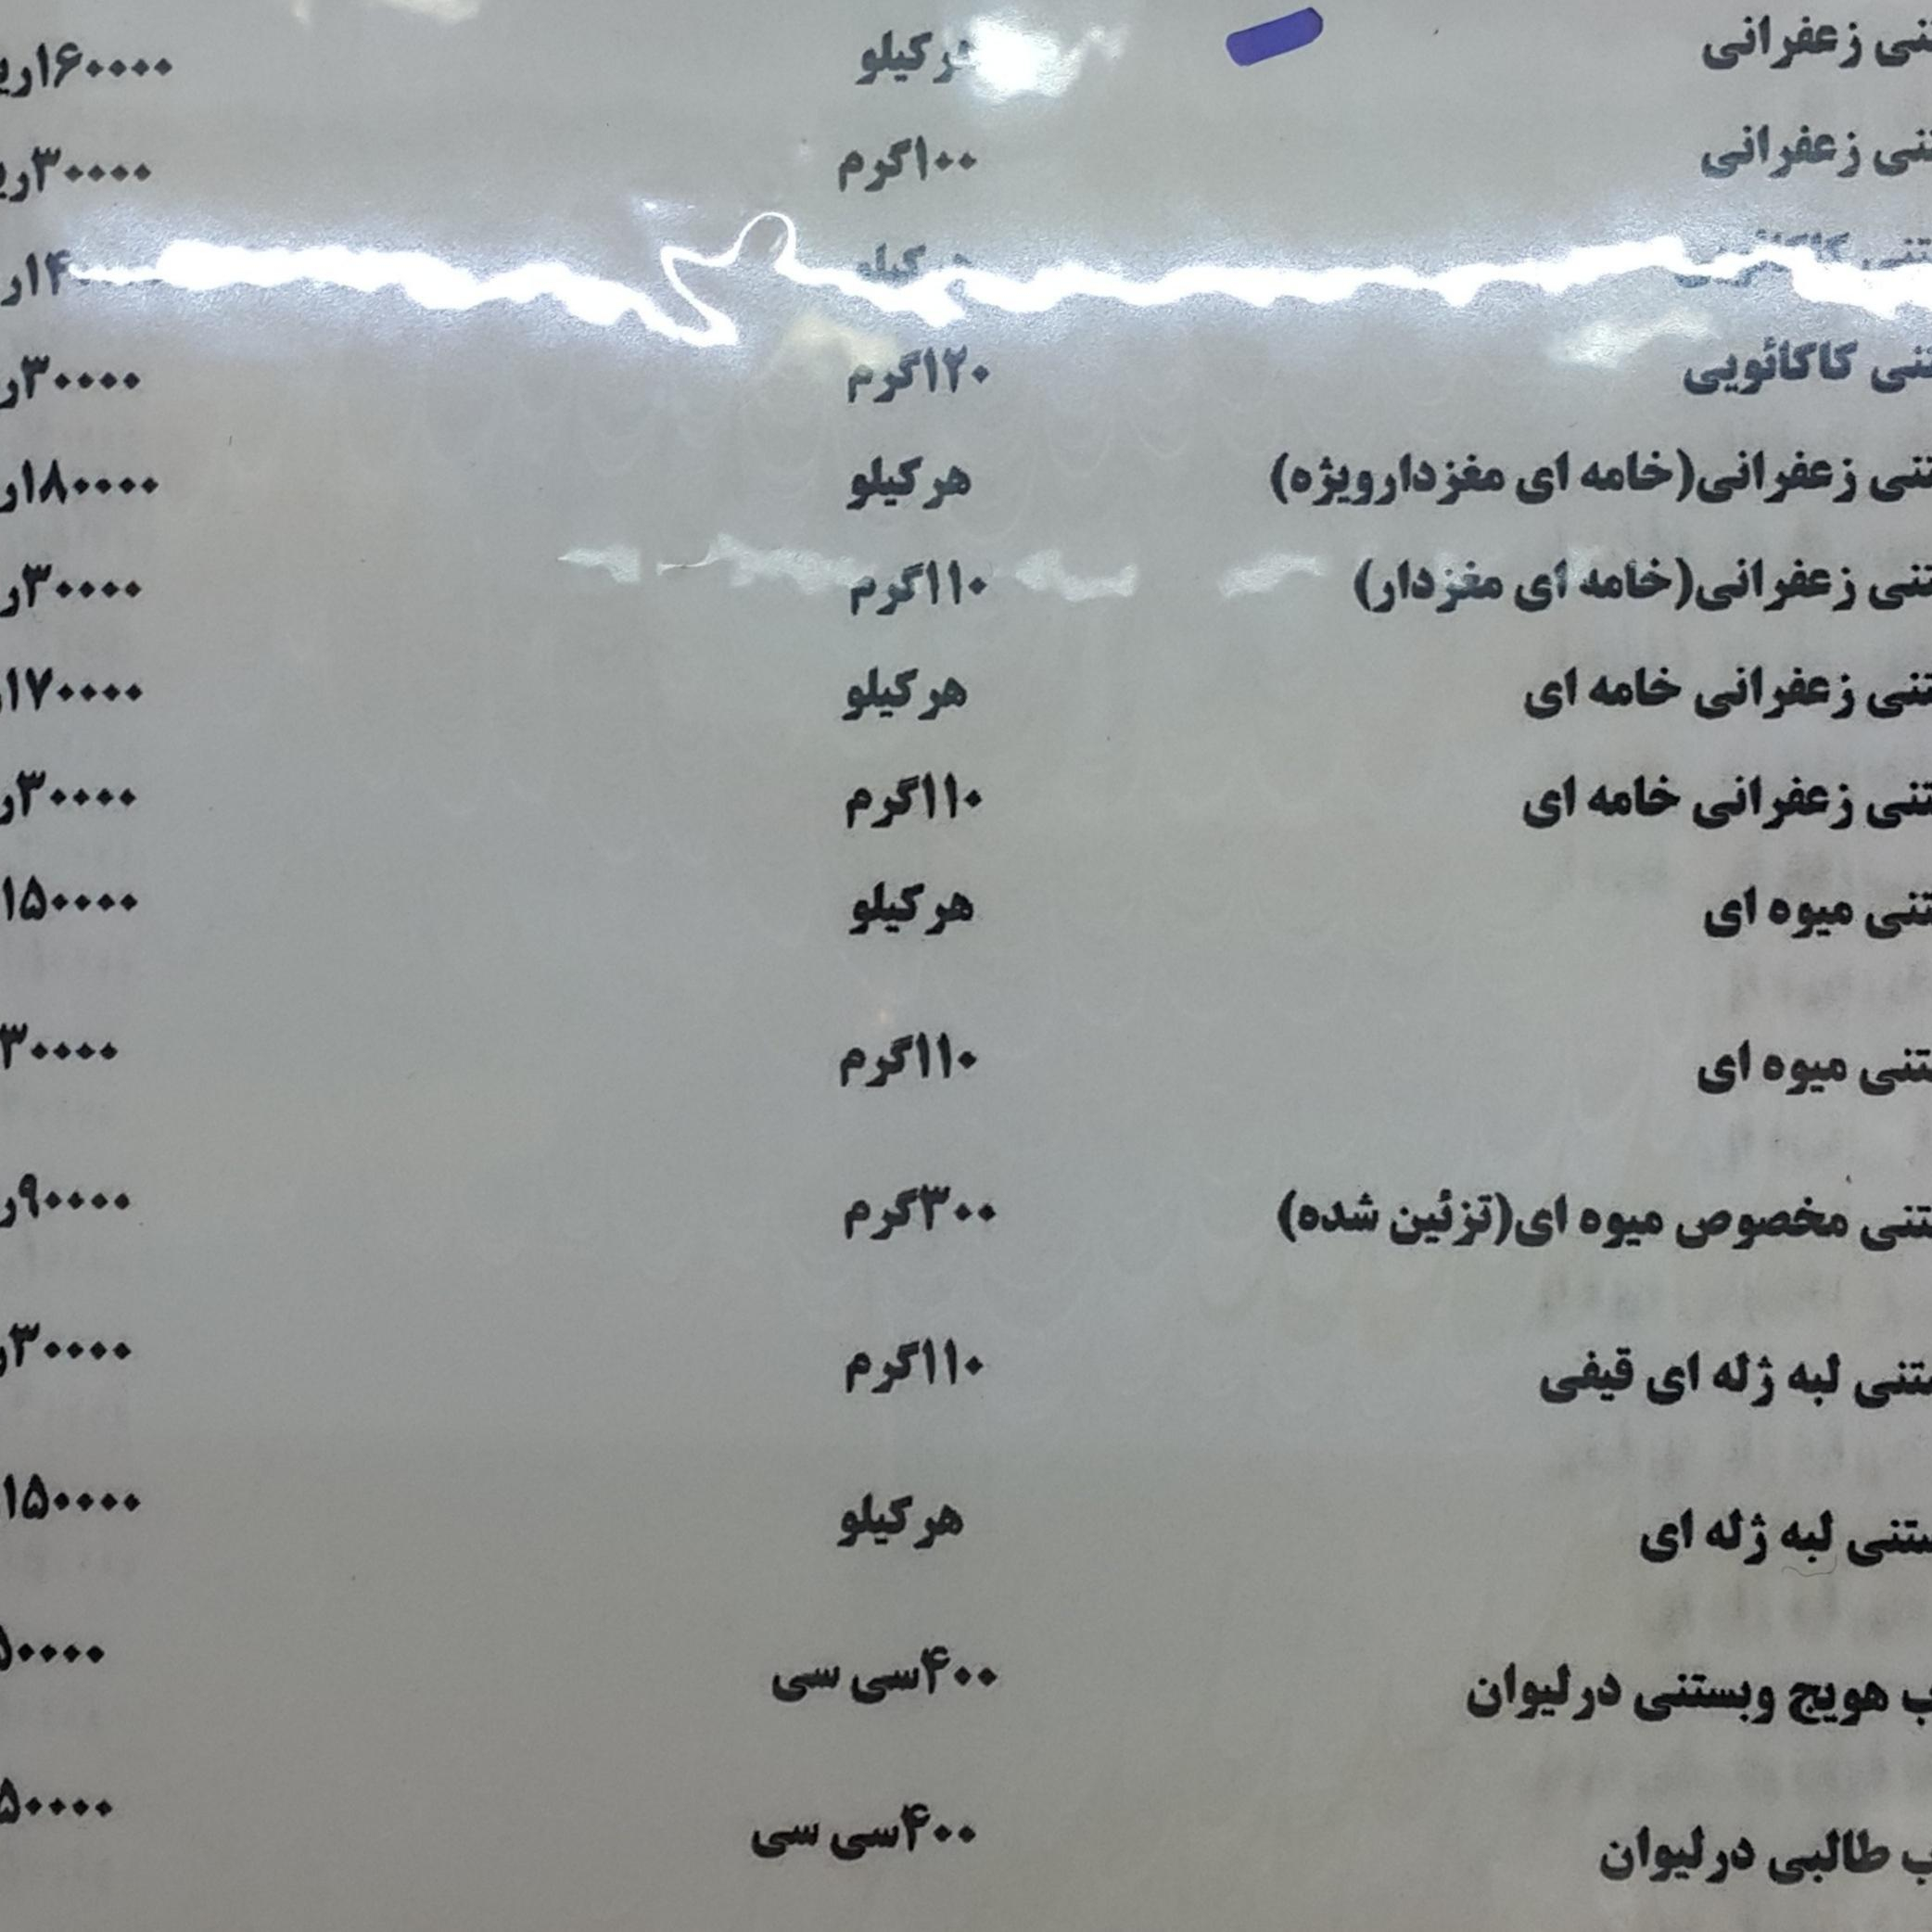 زعفرانی هرکیلو ۱۶۰۰۰۰
زعفرانی ۱۰۰گرم ۳۰۰۰۰
کاکائویی هرکیلو
کاکائویی ۱۲۰گرم ۳۰۰۰۰
زعفرانی(خامه ای مغزدارویژه) هرکیلو ۱۸۰۰۰۰
زعفرانی(خامه ای مغزدار) ۱۱۰گرم ۳۰۰۰۰
زعفرانی خامه ای هرکیلو ۱۷۰۰۰۰
زعفرانی خامه ای ۱۱۰گرم ۳۰۰۰۰
میوه ای هرکیلو ۱۵۰۰۰۰
میوه ای ۱۱۰گرم ۳۰۰۰۰
مخصوص میوه ای(تزئین شده) ۳۰۰گرم ۹۰۰۰۰
لبه ژله ای قیفی ۱۱۰گرم ۳۰۰۰۰
لبه ژله ای هرکیلو ۱۵۰۰۰۰
هویج وبستنی درلیوان ۴۰۰سی سی ۵۰۰۰۰
طالبی درلیوان ۴۰۰سی سی ۵۰۰۰۰